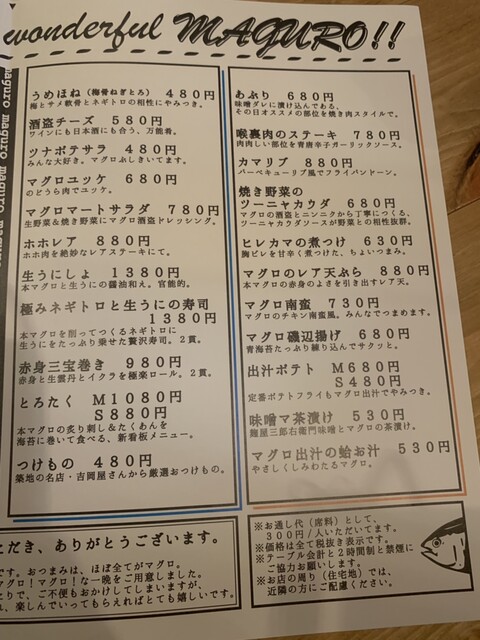 wonderful MAGURO!!
うめほね（梅骨ねぎとろ） 480円
梅とサメ軟骨とネギトロの相性にやみつき。
酒盗チーズ 580円
ワインにも日本酒にも合う、万能肴。
ツナポテサラ 480円
みんな大好き。マグロぶしきいてます。
マグロユッケ 680円
のどうら肉でユッケ。
マグロマートサラダ 780円
生野菜＆焼き野菜にマグロ酒盗ドレッシング。
ホホレア 880円
ホホ肉を絶妙なレアステーキにて。
生うにしょ 1380円
本マグロと生うにの醤油和え。官能的。
極みネギトロと生うにの寿司
1380円
本マグロを削ってつくるネギトロに
生うにをたっぷり乗せた贅沢寿司。2貫。
赤身三宝巻き 980円
赤身と生雲丹とイクラを極楽ロール。2貫。
とろたく M1080円
S880円
本マグロの炙り刺し＆たくあんを
海苔に巻いて食べる、新看板メニュー。
つけもの 480円
築地の名店・吉岡屋さんから厳選おつけもの。
あぶり 680円
味噌ダレに漬け込んである、
その日オススメの部位を焼き肉スタイルで。
喉裏肉のステーキ 780円
肉肉しい部位を青唐辛子ガーリックソース。
カマリブ 880円
バーベキューリブ風でフライパンドーン。
焼き野菜の
ツーニャカウダ 680円
マグロの酒盗とニンニクから丁寧につくる、
ツーニャカウダソースが野菜との相性抜群。
ヒレカマの煮つけ 630円
胸ビレを甘辛く煮つけた、ちょいつまみ。
マグロのレア天ぷら 880円
本マグロの赤身のよさを引き出すレア天。
マグロ南蛮 730円
マグロのチキン南蛮風。みんなでつまめます。
マグロ磯辺揚げ 680円
青海苔たっぷり練り込んでサクッと。
出汁ポテト M680円
S480円
定番ポテトフライもマグロ出汁でやみつき。
味噌マ茶漬け 530円
麹屋三郎右衛門味噌とマグロの茶漬け。
マグロ出汁の蛤お汁 530円
やさしくしみわたるマグロ。
ただき、ありがとうございます。
です。おつまみは、ほぼ全てがマグロ。
マグロ！マグロ！な一晩をご用意しました。
とりで、ご不便もおかけしてしまいますが、
れ、楽しんでいってもらえればとても嬉しいです。
※お通し代（席料）として、
300円/人いただいてます。
※価格は全て税抜き表示です。
※テーブル会計と2時間制と禁煙に
ご協力お願いします。
※お店の周り（住宅地）では、
近隣の方にご配慮ください。
maguro maguro maguro maguro